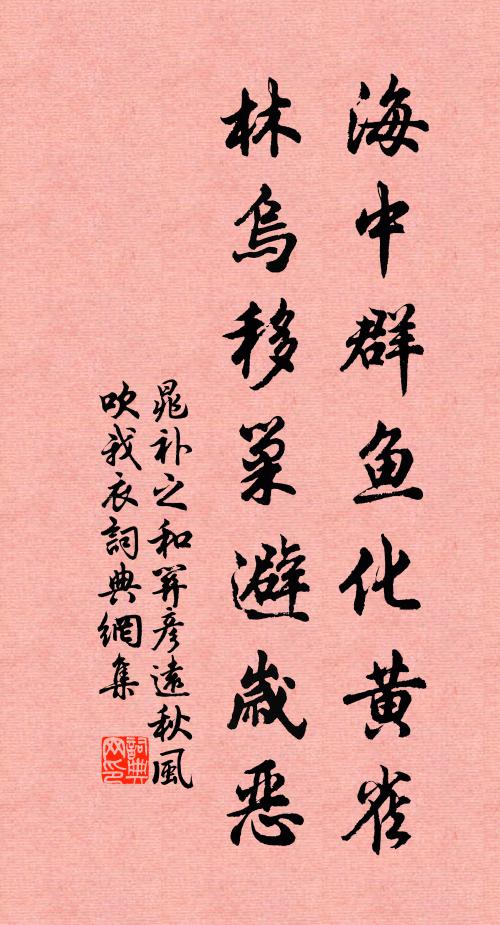 海中群鱼化黄雀
林乌移巢避岁恶
晁补之和关彦远秋风
吹我衣詞典網集
詞典
网印